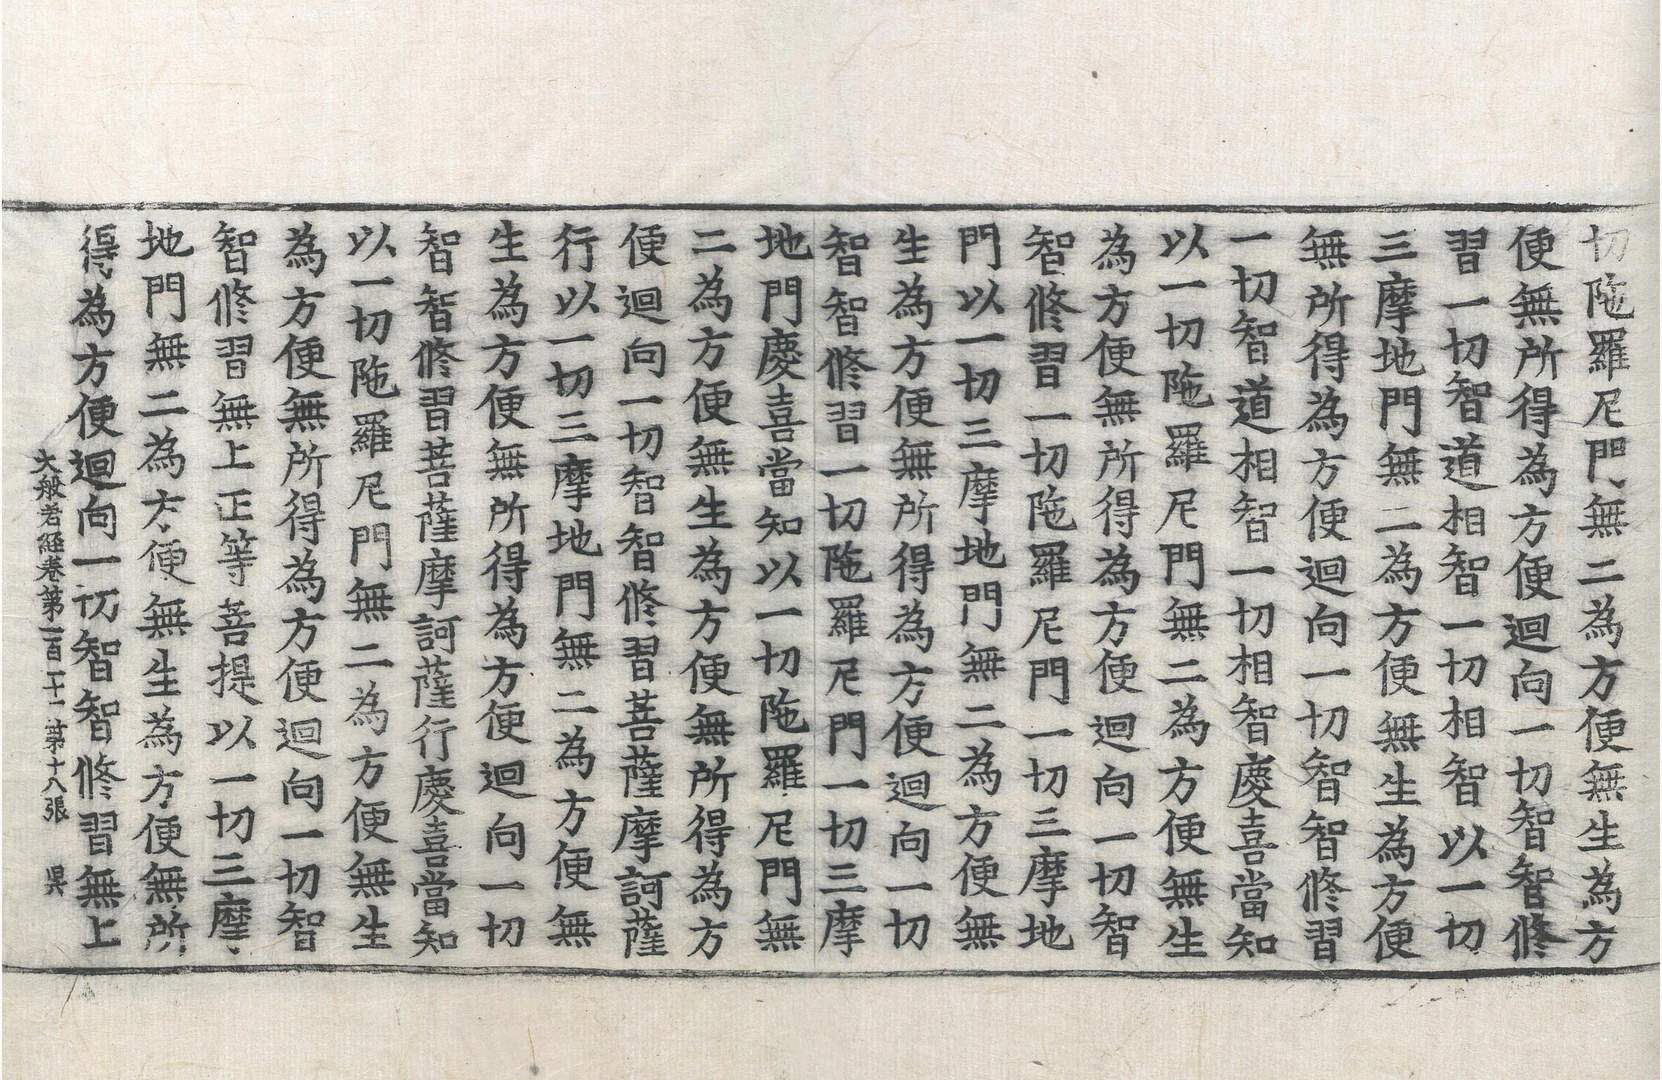 切陁羅尼門無二為方便無生為方
便無所得為方便迴向一切智智修
習一切智道相智一切相智以一切
三摩地門無二為方便無生為方便
無所得為方便迴向一切智智修習
一切智道相智一切相智慶喜當知
以一切陁羅尼門無二為方便無生
為方便無所得為方便迴向一切智
智修習一切陁羅尼門一切三摩地
門以一切三摩地門無二為方便無
生為方便無所得為方便迴向一切
智智修習一切陁羅尼門一切三摩
地門慶喜當知以一切陁羅尼門無
二為方便無生為方便無所得為方
便迴向一切智智修習菩薩摩訶薩
行以一切三摩地門無二為方便無
生為方便無所得為方便迴向一切
智智修習菩薩摩訶薩行慶喜當知
以一切陁羅尼門無二為方便無生
為方便無所得為方便迴向一切智
智修習無上正等菩提以一切三摩
地門無二為方便無生為方便無所
得為方便迴向一切智智修習無上
大般若經卷第一百二十一 第十八張